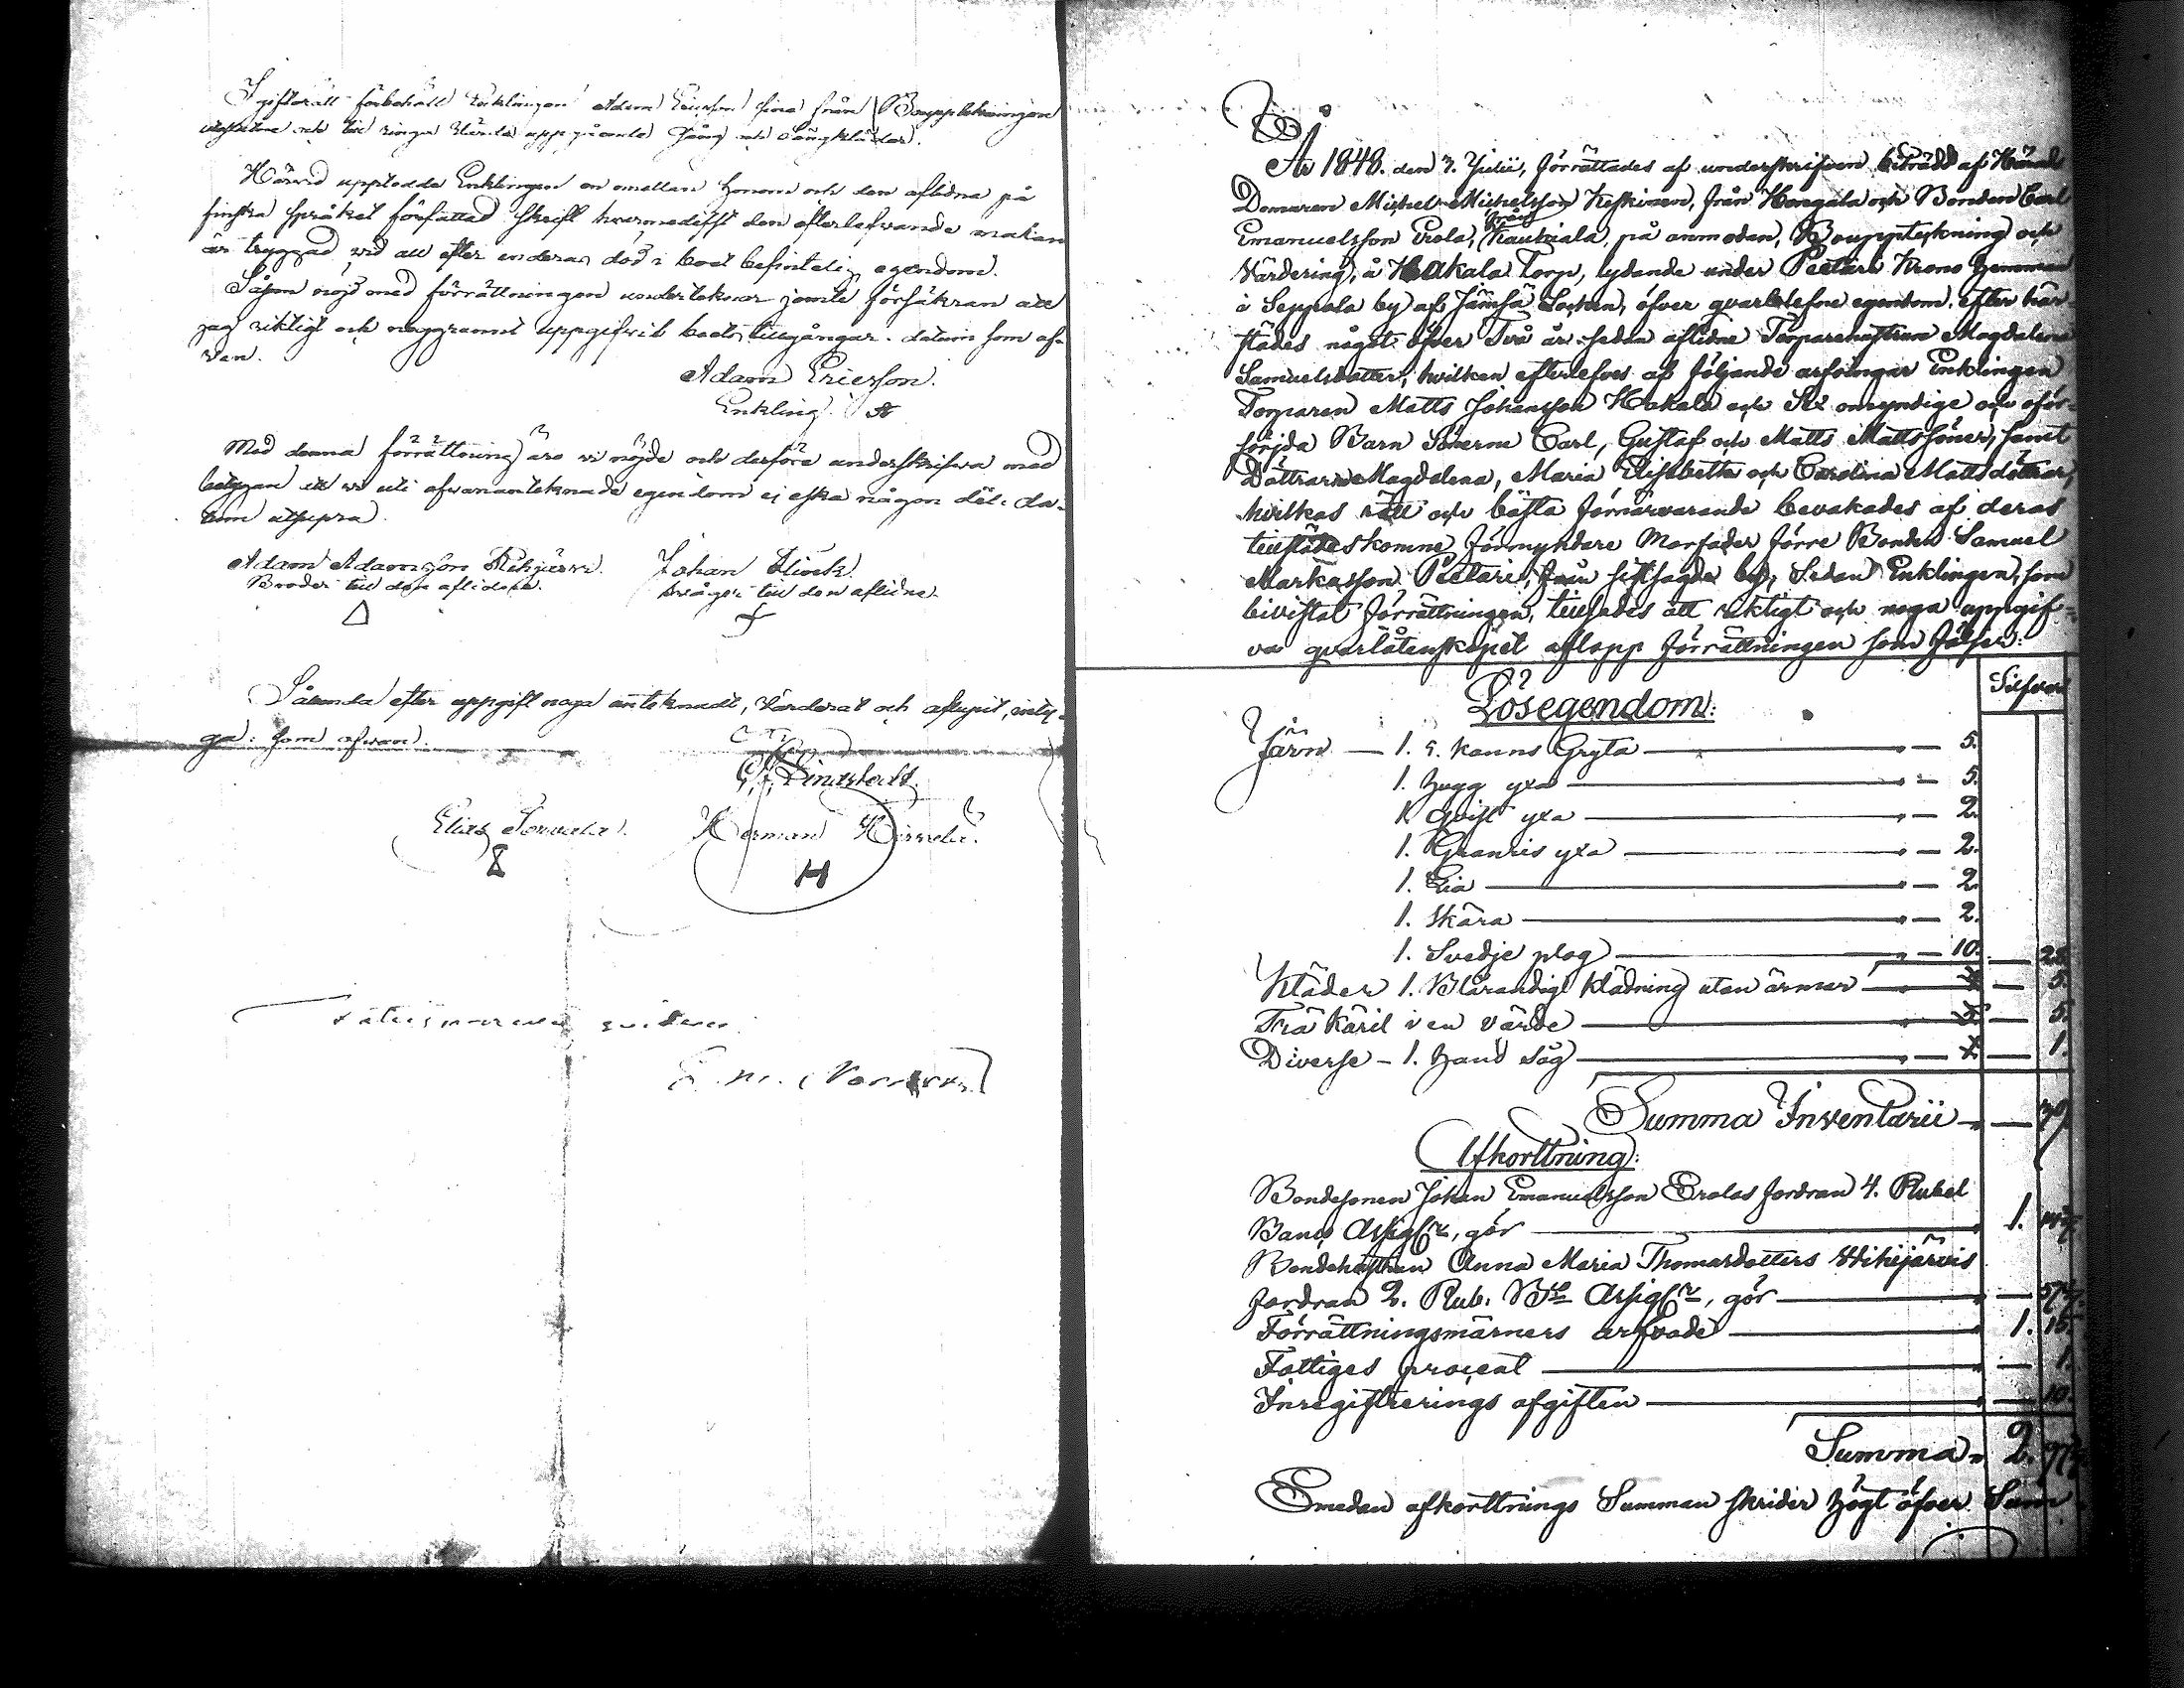 I giftorätt förbehåll Enklingen Adam Ericsson sina från Bouppteckningen
uteslutne och till ringa värde uppgående Gång och Sängkläder.
Härvid upplodda Enklingen en mellan honom och den aflidna på
finska språket författad skrift hvarmedelst den efterlefvande makan
är tryggad vid all efter enderas död i boet befintelig egendom.
Såsom nöjd med förrättningen undertecknar jemte försäkran att
jag riktigt och noggrannt uppgifvit boets tillgångar. datum som of-
van.
Adam Ericsson.
Enkling.
Med denna förrättning äro vi nöjde och derföre underskrifva med
betygan att vi uti ofvananteknade egendom ej äska någon del. da-
tum utsupra.
Adam Adamsson
Johan Flinck
Broder till den aflidna.
Svåger till den aflidne.
Sålunda efter uppgift noga anteknadt, Värderat och aflupit, inty-
ga: som ofvan.
Lindstedt.
Elias
Herman
H
År 1848. den 3. Julii, förrättades af underskrifven biträdd af Härads
Domaren Michel Michelsson Keskinen, från Hongala och Bonden Carl
Emanuelsson Erola, från Kautiala, på anmodan, Bouppteckning och
Värdering, å Hakala Torp, lydande under Peetari Krono Hemman
i Seppola by af Jämsä Socken, öfver qvarlefne egendom, efter här-
städes något öfver Två år sedan aflidne Torparehustrun Magdalena
Samuelsdotter, hvilken efterlefves af följande arfvingar Enklingen
Torparen Matts Johansson Hakala och Sex omyndige och oför-
sörjda Barn Sönerne Carl, Gustaf och Matts Mattssöner, samt
Döttrarne Magdalena, Maria Elisabeth och Carolina Mattsdöttrar,
hvilkas rätt och bästa förnärvarande bevakades af deras
tillstädeskomne Förmyndare Morfader förre Bonden Samuel
Markusson Peetari, från sistsagde by, Sedan Enklingen, som
bivistat förrättningen, tillsades att riktigt och noga uppgif-
va qvarlåtenskapet aflopp förrättningen som följer:
Lösegendom:
Silfver
Järn — 1. 5. kanns Gryta — „ — 5.
1. Hugg yxa — „ — 5.
1. Qvist yxa — „ — 2.
1. Granris yxa — „ — 2.
1. Lia — „ — 2.
1. Skära — „ — 2.
1. Svedje plog — „ — 10. — 28.
Kläder 1. Blårandig klädning utan ärmar — 5.
Trä Käril i en värde — 5.
Diverse - 1. Hand såg — 1.
Summa Inventarii „ — 39
Afkorttning:
Bondesonen Johan Emanuelsson Erolas fordran 4. Rubel
Banco Assigr, gör — 1.
Bondehustrun Anna Maria Thomasdotters
fordran 2. Rub. Bco Assigr, gör —
Förrättningsmännens arfvode — 1. 15.
Fattiges procent — 1.
Inregistrerings afgiften — 10.
Summa „ 2.
Emedan afkorttnings Summan skrider högt öfver Sum